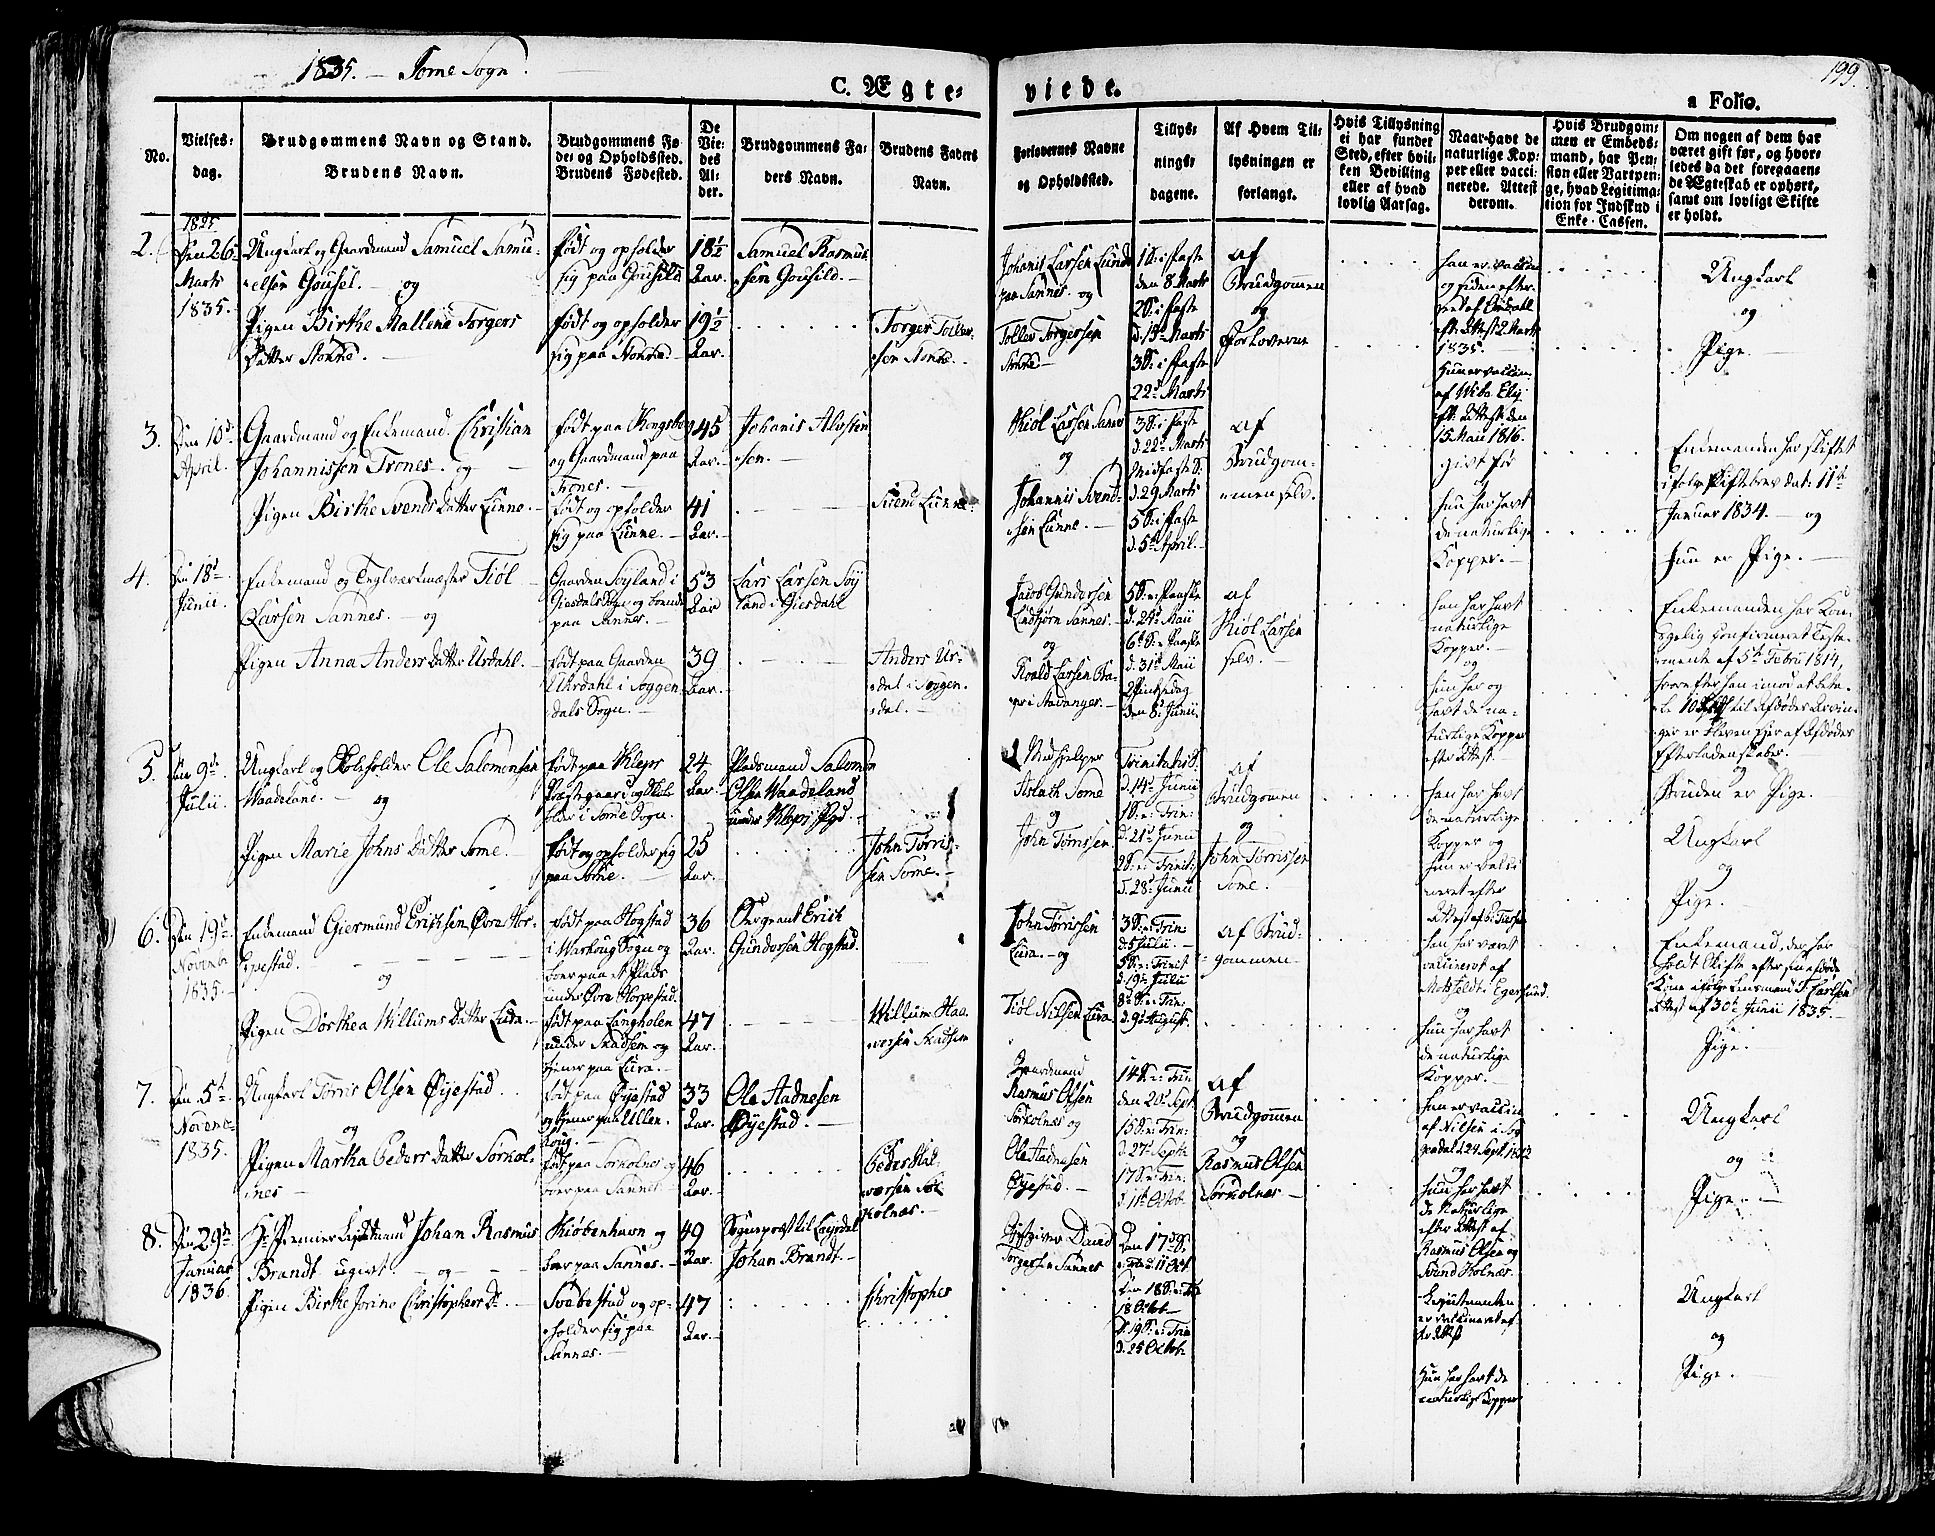 1835. — Some Sogn.
199.
C. Ægte-
viede.
a Folio.
No.
Vielses-
dag.
Brudgommens Navn og Stand.
Brudens Navn.
Brudgommens Fø-
de- og Opholdssted.
Brudens Fødested.
De
Vie-
des
Al-
der.
Brudgommens Fa-
ders Navn.
Brudens Faders
Navn.
Forlovernes Navne
og Opholdssted.
Tillys-
nings-
dagene.
Af Hvem Til-
lysningen er
forlangt.
Hvis Tillysning
ei har fundet
Sted, efter hvil-
ken Bevilling
eller af hvad
lovlig Aarsag.
Naar havt de
naturlige Kop-
per eller vacci-
nerede. Attest
derom.
Hvis Brudgom-
men er Embeds-
mand, har Pen-
sion eller Vartpen-
ge, hvad Legitima-
tion for Indskud i
Enke-Cassen.
Om nogen af dem har
været gift før, og hvor-
ledes da det foregaaen-
de Ægteskab er ophørt,
samt om lovligt Skifte
er holdt.
2.
Den 26
Marts
1835.
Ungkarl og Gaardmand Samuel Samu-
elsen Gousel. — og
Pigen Birthe Mallene Torgers
Datter
født og opholder
sig paa Gousild
født og opholder
sig paa
18½
Aar.
19½
Aar.
Samuel Rasmus-
sen Gousild.
Torger Tollev-
sen
Johanis Larsen Lunde
paa Sannes. og
Tollev Torgersen
1 S. i Faste
den 8 Marts
2 S. i Faste
d. 15 Marts
3 S. i Faste
22d Marts
af
Brudgomen
og
Forloverne
han er vaccin.
og siden efter
efter Attest 2 Marts
1835.
Hun er vaccin.
eft. Attest den
15 Maii 1816.
Ungkarl
og
Pige.
3.
Den 10d
April.
Gaardmand og Enkemand Christian
Johannissen Trones. og
Pigen Birthe Svends Datter Lunne.
født paa Kongsberg
og Gaardmand paa
Trones.
født og opholder
sig paa Lunne.
45
Aar.
41
Aar.
Johanis Alvsten
sen.
Svend Lunne.
Kiøl Larsen Sannes
og
Johannis Svend-
sen Lunne.
3 S. i Faste
d. 22 Marts
Midfaste S.
d. 29 Marts
5 S. i Faste
d. 5 April.
af
Brudgom-
men selv.
givt før
hun har havt
de naturlige
Kopper.
Enkemanden har skiftet
ifølge Skiftebrev dat. 11te
Januar 1834. — og
hun er Pige.
4.
Den 18d
Junii.
Enkemand og Teglværkmæster Tiøl
Larsen Sannes. — og
Pigen Anna Anders Datter Urdahl.
Gaarden Søyland i
Giesdals Sogn og boende
paa Sannes.
født paa Gaarden
Uhrdahl i Soggen-
dals Sogn.
53
Aar
39
Aar.
Lars Larsen Søy
land i Giesdahl
Anders Ur-
dal i Soggen-
dal.
Jacob Gundersen
Lindbjørn Sannes.
og
Roald Larsen
i Stavanger.
5 S. e. Paaske
d. 24 Maii
6 S. e. Paaske
d. 31d Maii
2 Pintsedag
den 8d Junii.
af
Kiøl Larsen
selv.
han har havt
naturlige
Kopper.
og
hun har og
havt de na-
turlige Kopper
efter Attest.
Enkemanden har Kon-
gelig confirmeret Testa-
mente af 5te Febru 1814,
hvorefter han imod at beta-
le til afdødes Arvin-
ger er bleven Eier af afdødes
Efterladenskaber.
og
Bruden er Pige.
5.
Den 9de
Julii.
Ungkarl og Skoleholder Ole Salomonsen
Waadeland. — og
Pigen Marie Johns Datter Some.
født paa Kleps
Præstegaard og Skole-
holder i Some Sogn.
født og opholder sig
paa Some.
24
Aar.
25
Aar.
Pladsmand Salomon
Olsen Waadeland
under Kleps Pgd.
John Tørris-
sen Some.
Medhjelper
Aslach Some
og
John Tørrissen
Trinitatis S.
d. 14 Junii
1 S. e. Trin:
d. 21 Junii
2 S. e. Trinit:
d. 28 Junii
af
Brudgomen
og
John Tørrissen
Some.
han har havt
de naturlige
Kopper og
hun er vacci
neret efter
Ungkarl
og
Pige.
6.
Den 19d
Novemb
1835.
Enkemand Giermund Erichsen Øvre Hor-
ppestad.
og
Pigen Dorthea Willums Datter Lura.
født paa Hogstad
i Warhoug Sogn og
boer paa et Plads
under Øvre Horpestad.
født paa Langholen
under Skadsem og
tjener paa Lura.
36
Aar.
47
Aar.
Sergeant Erich
Gundersen Hogstad.
Willum Haa-
versen Skadsem
John Tørrissen
Lura. — og
Tiøl Nilsen Lura.
3 S. e. Trin:
d. 5 Julii.
5 S. e. Trinit
d. 19 Julii
8 S. e. Trin:
d. 9 August.
af Brud-
gommen
han har været
vaccineret af
Egersund.
og
hun har havt
de naturlige
Kopper.
Enkemand, der har
holdt Skifte efter sin afdøde
Kone ifølge Lensmand Carlsen
Attest af 30te Junii 1835.
Pige.
7.
Den 5te
Novem
1835.
Ungkarl Tørris Olsen Øyestad.
og
Pigen Martha Peders Datter Sørkol-
nes
født paa Øyestad
og tjener paa Ullen-
houg.
født paa Sørkolnes og
boer paa Sannes
33
Aar.
46
Aar.
Ole Aadnesen
Øyestad.
Peder Hal-
vorsen Sør
kolnæs.
Gaardmand
Rasmus Olsen
Sørkolnæs og
Ole Aadnesen
Øyestad.
14 S. e. Trin
den 20 Sept
15 S. e. Trin:
d. 27 Septb
17 S. e. Trin:
d. 11 Octob.
af
Brudgomen
og
Rasmus Olsen
Sørkolnæs
han er vaccin
af Nilsen i Sog
og
hun har havt
de Naturlige
efter Attest af
Rasmus Olsen og
Svend Holnæs.
Ungkarl
og
Pige.
8.
Den 29de
Januar
1836.
Hr Premier Leutnant Johan Rasmus
Brandt ugivt. — og
Pigen Birthe Jorine Christophers Dr.
Kiøbenhavn og
boer paa Sannes.
Svebestad og op-
holder sig paa
Sannes.
49
Aar.
47
Aar
Sognepræst til
Johan Brandt
Christopher
Gjestgiver David
Torgersen Sannes
Den 17de S.
e. Trin: 11 Oct
Den 18 S. e. Tr
18 Octob
d. 19 S. e. Trin
d. 25 Octob.
Leutnanten
er vaccineret af
Hun har havt de
naturlige Kopper
Ungkarl
og
Pige.